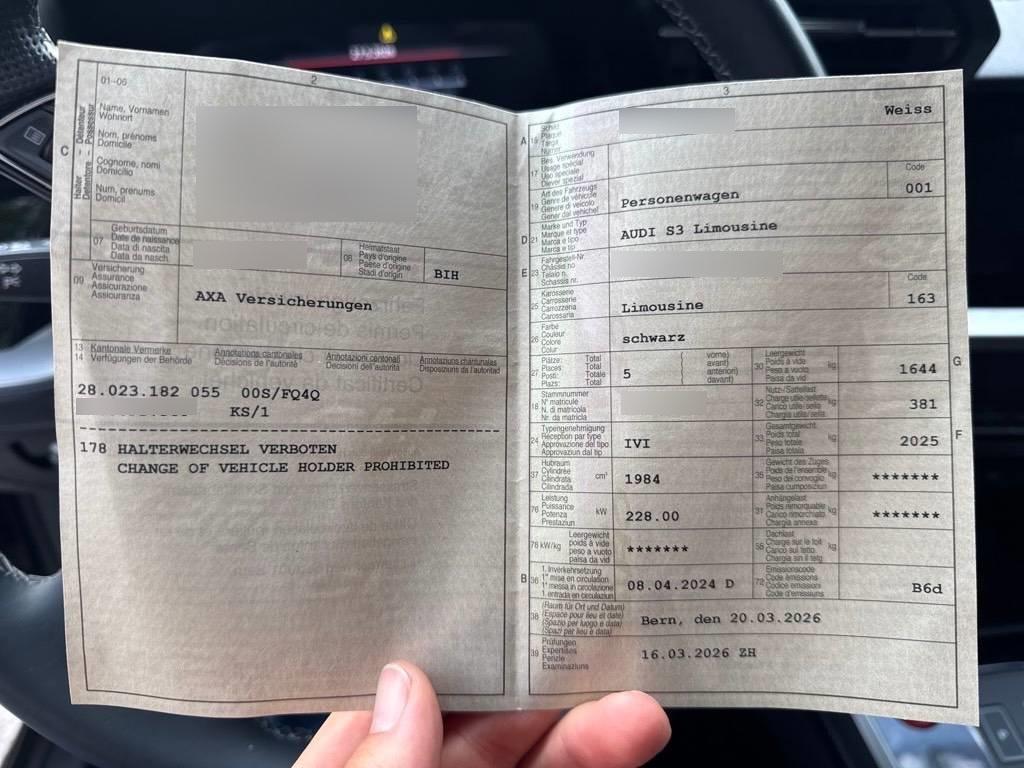 2
01-06
C
Halter - Détenteur
Detentore - Possessur
Name, Vornamen
Wohnort
Nom, prénoms
Domicile
Cognome, nomi
Domicilio
Num, prenums
Domicil
07
Geburtsdatum
Date de naissance
Data di nascita
Data da nasch.
08
Heimatstaat
Pays d'origine
Paese d'origine
Stadi d'origin
BIH
09
Versicherung
Assurance
Assicurazione
Assicuranza
AXA Versicherungen
13 Kantonale Vermerke
14 Verfügungen der Behörde
Annotations cantonales
Décisions de l'autorité
Annotazioni cantonali
Decisioni dell'autorità
Annotaziuns chantunalas
Disposiziuns da l'autoritad
28.023.182 055 00S/FQ4Q
KS/1
178 HALTERWECHSEL VERBOTEN
CHANGE OF VEHICLE HOLDER PROHIBITED
3
A
Schild
Plaque
Targa
Numer
Weiss
17
Bes. Verwendung
Usage spécial
Uso speciale
Diever spezial
19
Art des Fahrzeugs
Genre de véhicule
Genere di veicolo
Gener dal vehichel
Personenwagen
Code
001
D 21
Marke und Typ
Marque et type
Marca e tipo
Marca e tip
AUDI S3 Limousine
E 23
Fahrgestell-Nr.
Châssis no
Telaio n.
Schassis nr.
25
Karosserie
Carrosserie
Carrozzeria
Carossaria
Limousine
Code
163
26
Farbe
Couleur
Colore
Colur
schwarz
27
Plätze: Total
Places: Total
Posti: Totale
Plazs: Total
5
vorne)
avant)
anteriori)
davant)
30
Leergewicht
Poids à vide
Peso a vuoto
Paisa da vid
kg
1644
G
18
Stammnummer
N° matricule
N. di matricola
Nr. da matricla
32
Nutz-/Sattellast
Charge utile/sellette
Carico utile/sella
Chargia utila/sella
kg
381
24
Typengenehmigung
Réception par type
Approvazione del tipo
Approvaziun dal tip
IVI
33
Gesamtgewicht
Poids total
Peso totale
Paisa totala
kg
2025
F
37
Hubraum
Cylindrée
Cilindrata
Cilindrada
cm³
1984
35
Gewicht des Zuges
Poids de l'ensemble
Peso del convoglio
Paisa cumposiziun
kg
*******
76
Leistung
Puissance
Potenza
Prestaziun
kW
228.00
31
Anhängelast
Poids remorquable
Carico rimorchiato
Chargia annexa
kg
*******
78 kW/kg
Leergewicht
poids à vide
peso a vuoto
paisa da vid
*******
55
Dachlast
Charge sur le toit
Carico sul tetto
Chargia sin il tetg
kg
B 36
1. Inverkehrsetzung
1re mise en circulation
1a messa in circolazione
1. entrada en circulaziun
08.04.2024 D
72
Emissionscode
Code émissions
Codice emissioni
Code d'emissiuns
B6d
38
(Raum für Ort und Datum)
(Espace pour lieu et date)
(Spazio per luogo e data)
(Spazi per lieu e data)
Bern, den 20.03.2026
39
Prüfungen
Expertises
Perizie
Examinaziuns
16.03.2026 ZH